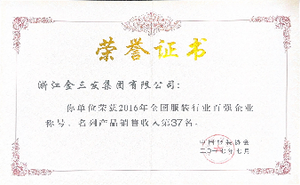 荣誉证书
浙江金三发集团有限公司：
你单位荣获2016年全国服装行业百强企业
称号，名列产品销售收入第37名。
中国服装协会
二〇一七年七月